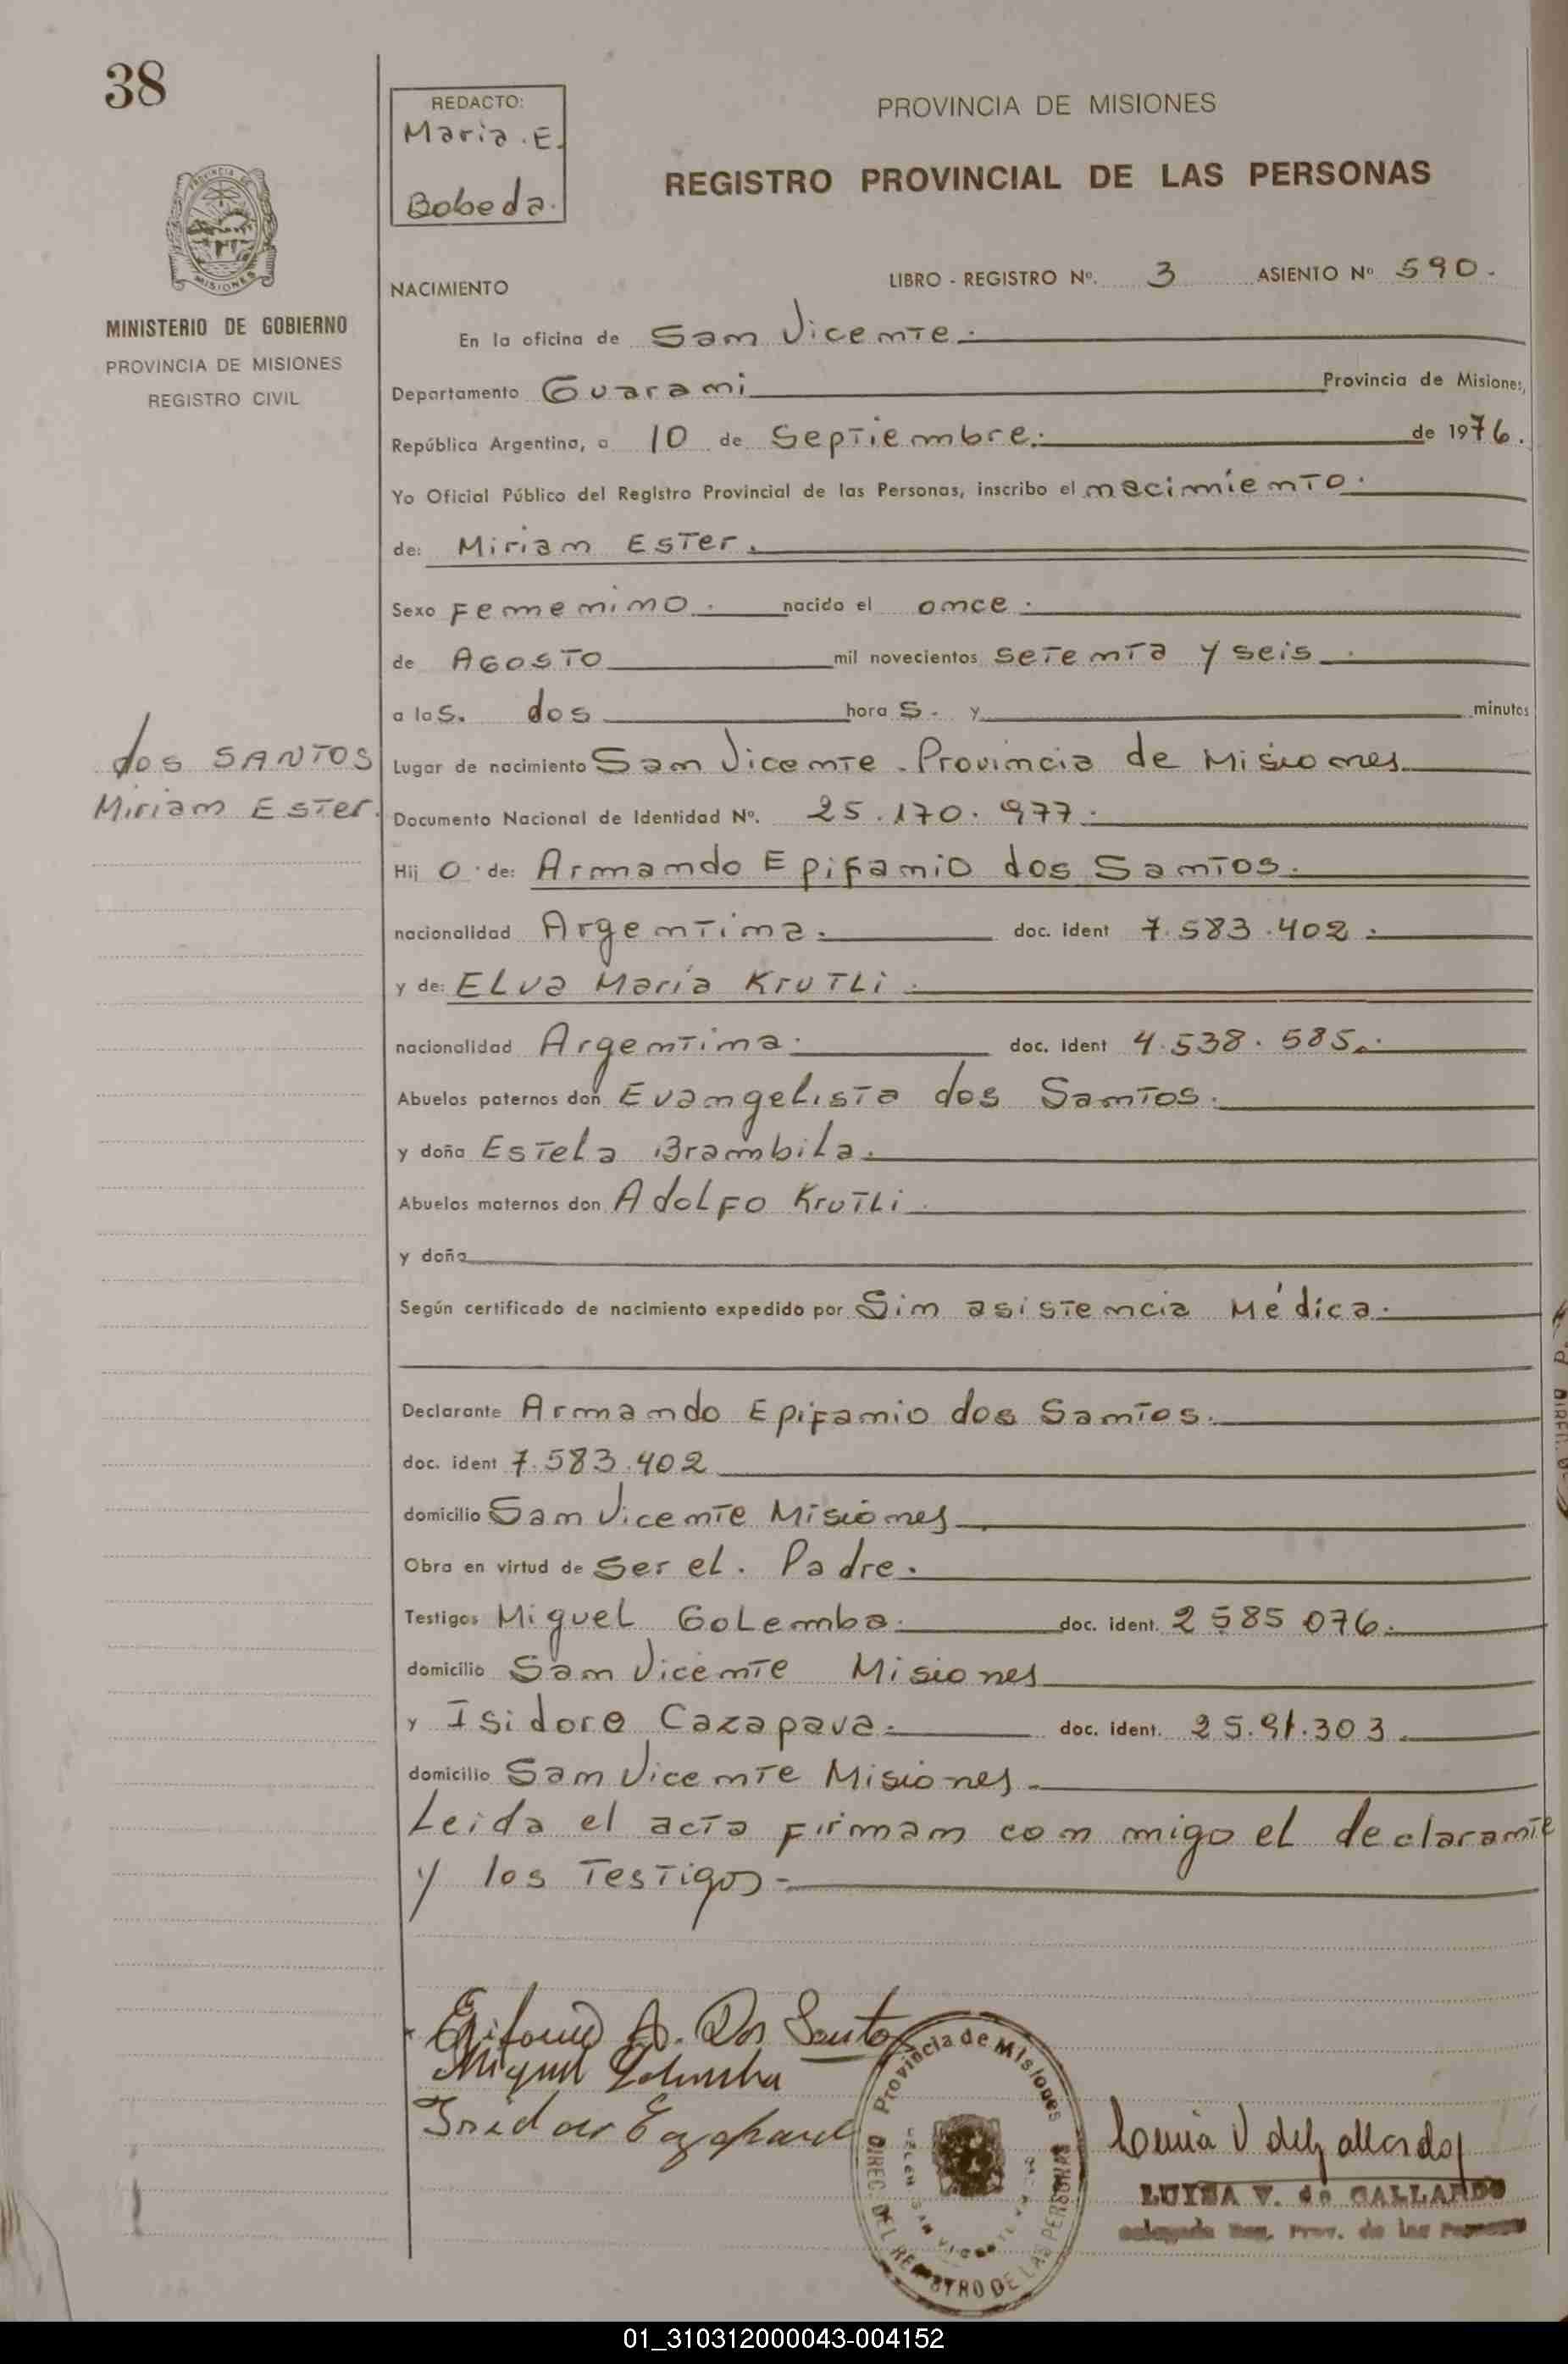 38
REDACTO:
Maria. E.
Bobeda.
PROVINCIA DE MISIONES
REGISTRO PROVINCIAL DE LAS PERSONAS
MINISTERIO DE GOBIERNO
PROVINCIA DE MISIONES
REGISTRO CIVIL
NACIMIENTO
LIBRO - REGISTRO Nº. 3 ASIENTO Nº 590.
En la oficina de San Vicente.
Departamento Guarani Provincia de Misiones,
República Argentina, a 10 de Septiembre. de 1976.
Yo Oficial Público del Registro Provincial de las Personas, inscribo el nacimiento.
de: Miriam Ester.
Sexo Femenino. nacido el once.
de AGOSTO mil novecientos setenta y seis.
a las. dos horas. y minutos
dos SANTOS
Miriam Ester.
Lugar de nacimiento San Vicente. Provincia de Misiones
Documento Nacional de Identidad Nº. 25.170.977.
Hij o de: Armando Epifanio dos Santos.
nacionalidad Argentina. doc. ident 7.583.402.
y de: Elva María Krutli.
nacionalidad Argentina. doc. ident 4.538.585.
Abuelos paternos don Evangelista dos Santos.
y doña Estela Brambila.
Abuelos maternos don Adolfo Krutli.
y doña
Según certificado de nacimiento expedido por Sin asistencia Médica.
Declarante Armando Epifanio dos Santos.
doc. ident 7.583.402
domicilio San Vicente Misiones
Obra en virtud de Ser el. Padre.
Testigos Miguel Golemba. doc. ident. 2585076.
domicilio San Vicente Misiones
y Isidoro Cazapava. doc. ident. 25.91.303.
domicilio San Vicente Misiones.
Leida el acta firman con migo el declarante
y los Testigos.-
Epifanio A. Dos Santos
Miguel Golemba
Isidoro Cazapava
Provincia de Misiones
DIREC. DEL REGISTRO DE LAS PERSONAS
LUISA V. de GALLARDO
Delegada Reg. Prov. de las Personas
01_310312000043-004152